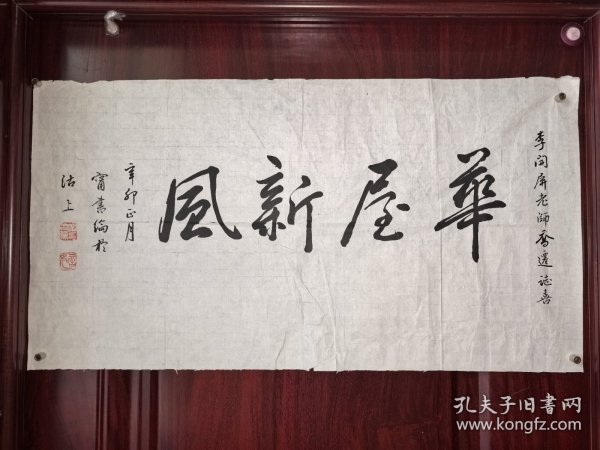 李開屏老師喬遷誌喜
華屋新風
辛卯正月
甯書綸於
沽上
孔夫子旧書网
www.kongfz.com